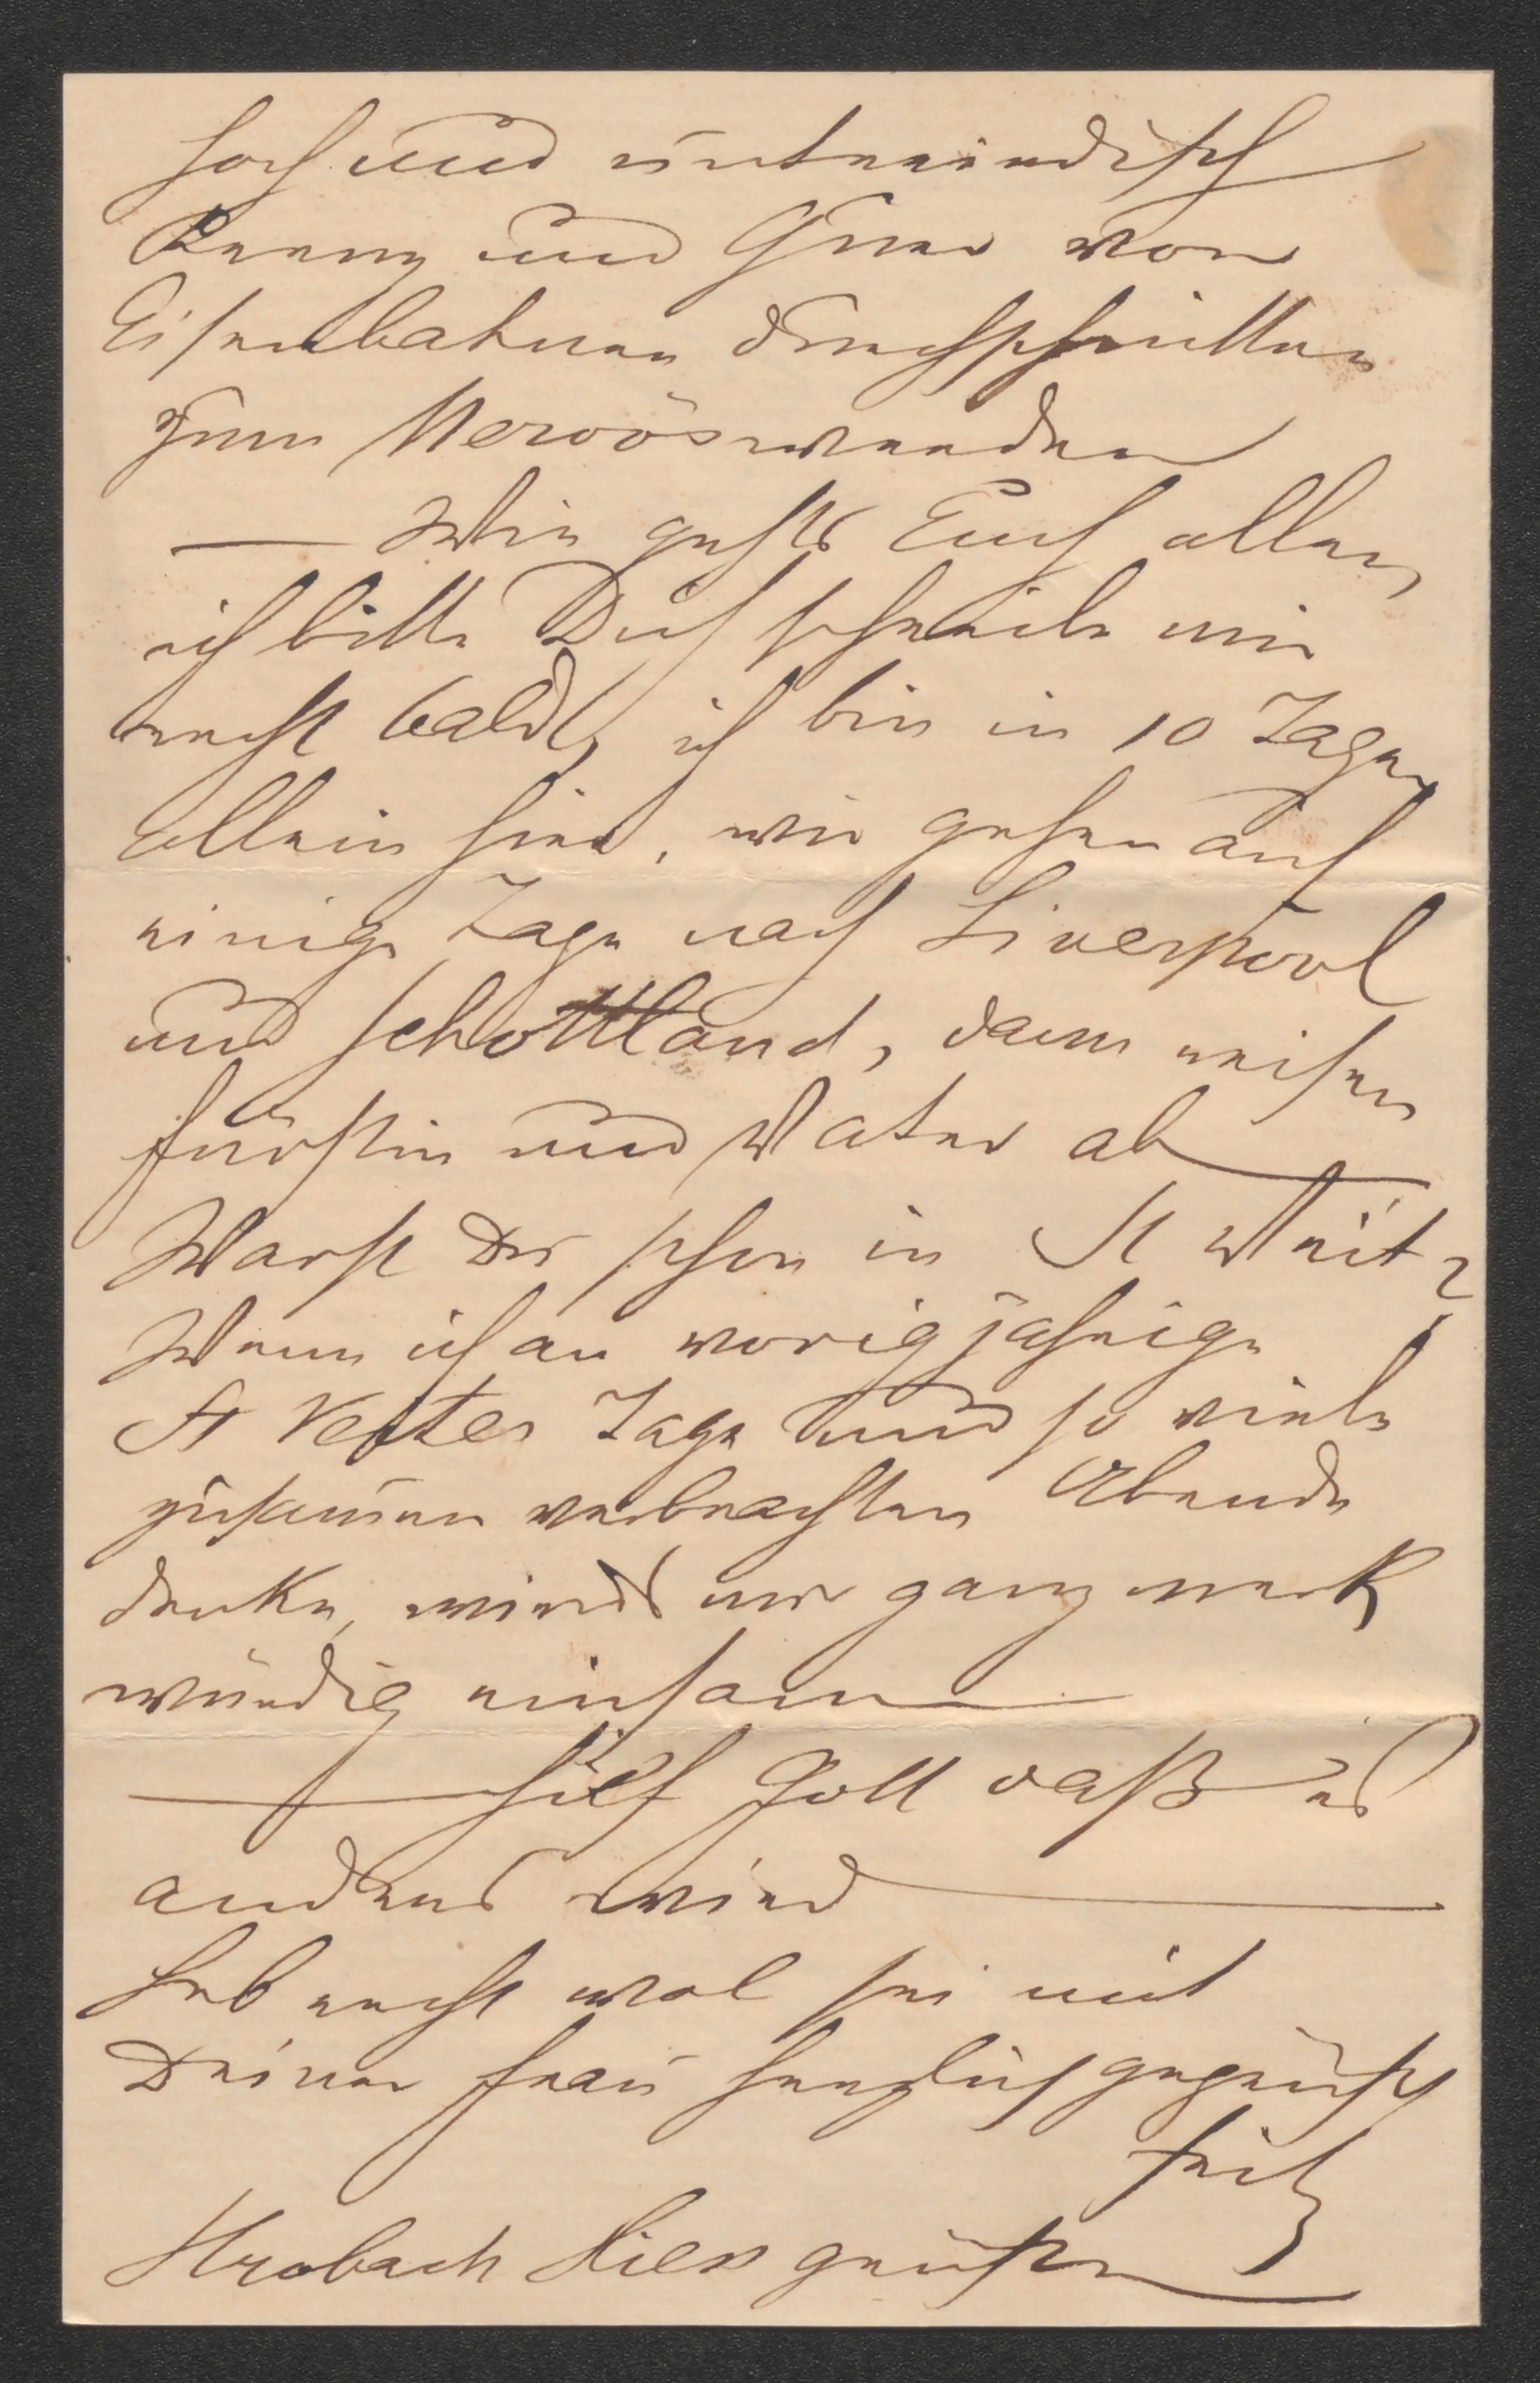 hoch und unterirdisch
Kreuz und Quer von
Eisenbahnen durchschnitten
zum Nervöswerden
— Wie gehts Euch allen,
ich bitte Dich schreibe mir
recht bald, ich bin in 10 Tagen
allein hier, wir gehen auf
einige Tage nach Liverpool
und Schottland, dann reisen
Fürstin und Vater ab —
Warst Du schon in St Veit?
Wenn ich an vorigjährige
St Veiter Tage und so viele
zusamen verbrachten Abende
denke, wirds mir ganz merk
würdig einsam —
— Hilf Gott daß es
anders wird —
Leb recht wol sei mit
Deiner Frau herzlich gegrüßt
Fritz
Hrobach grüßen